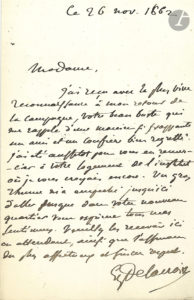 Ce 26 nov. 1862
Madame,
J'ai reçu avec la plus vive
reconnaissance à mon retour de
la campagne, votre beau buste qui
me rappelle d'une manière si frappante
un ami et un confrère bien regretté.
J'ai été aussitôt pour vous en remer-
cier à votre logement de l'institut
où je vous croyais encore. Un gros
rhume m'a empêché jusqu'ici
d'aller jusque dans votre nouveau
quartier vous exprimer tous mes
sentiments. Veuillez les recevoir ici
en attendant, ainsi que l'assurance
du plus affectueux et sincère respect
E Delacroix